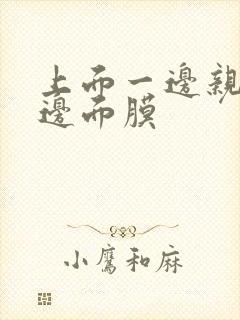 上而一邊親
邊而膜
小鷹和麻